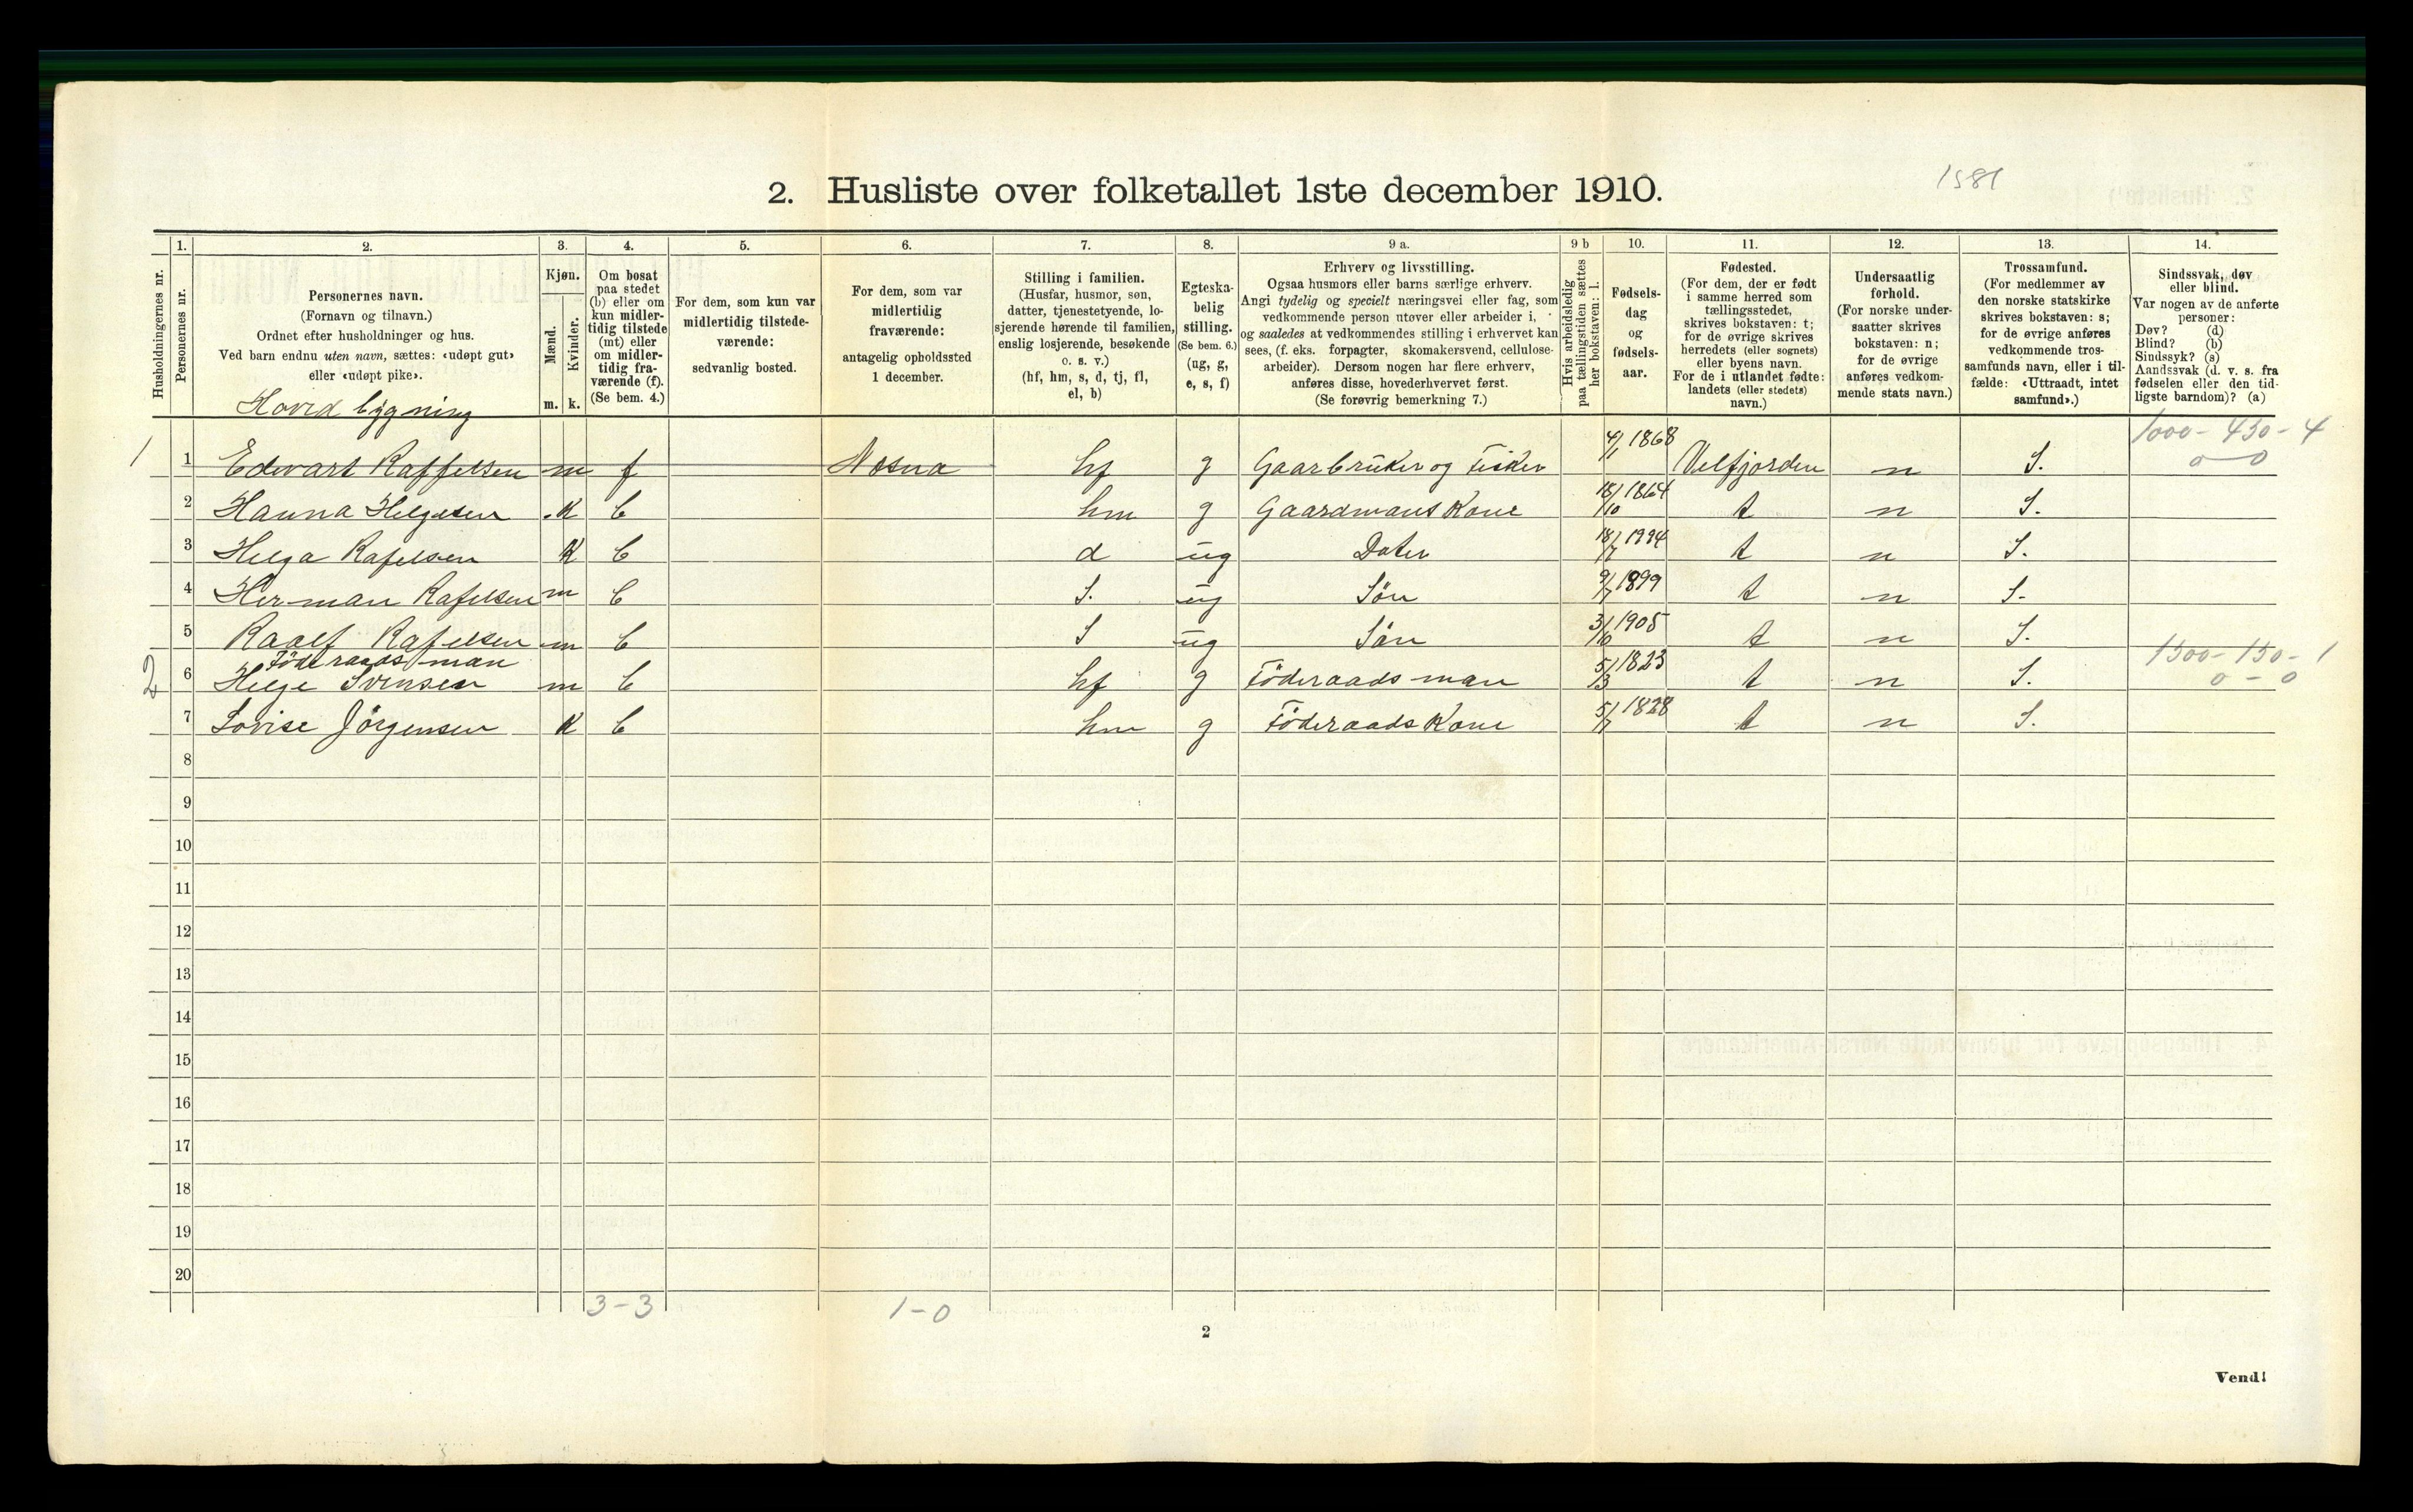 1581
2. Husliste over folketallet 1ste december 1910.
1. 2. 3. 4. 5. 6. 7. 8. 9 a. 9 b 10. 11. 12. 13. 14.
Husholdningernes nr.
Personernes nr.
Personernes navn.
(Fornavn og tilnavn.)
Ordnet efter husholdninger og hus.
Ved barn endnu uten navn, sættes: «udøpt gut»
eller «udøpt pike».
Hoved bygning
Kjøn.
Mænd.
Kvinder.
m. k.
Om bosat
paa stedet
(b) eller om
kun midler-
tidig tilstede
(mt) eller
om midler-
tidig fra-
værende (f).
(Se bem. 4.)
For dem, som kun var
midlertidig tilstede-
værende:
sedvanlig bosted.
For dem, som var
midlertidig
fraværende:
antagelig opholdssted
1 december.
Stilling i familien.
(Husfar, husmor, søn,
datter, tjenestetyende, lo-
sjerende hørende til familien,
enslig losjerende, besøkende
o. s. v.)
(hf, hm, s, d, tj, fl,
el, b)
Egteska-
belig
stilling.
(Se bem. 6.)
(ug, g,
e, s, f)
Erhverv og livsstilling.
Ogsaa husmors eller barns særlige erhverv.
Angi tydelig og specielt næringsvei eller fag, som
vedkommende person utøver eller arbeider i,
og saaledes at vedkommendes stilling i erhvervet kan
sees, (f. eks. forpagter, skomakersvend, cellulose-
arbeider). Dersom nogen har flere erhverv,
anføres disse, hovederhvervet først.
(Se forøvrig bemerkning 7.)
Hvis arbeidsledig
paa tællingstiden sættes
her bokstaven: l.
Fødsels-
dag
og
fødsels-
aar.
Fødested.
(For dem, der er født
i samme herred som
tællingsstedet,
skrives bokstaven: t;
for de øvrige skrives
herredets (eller sognets)
eller byens navn.
For de i utlandet fødte:
landets (eller stedets)
navn.)
Undersaatlig
forhold.
(For norske under-
saatter skrives
bokstaven: n;
for de øvrige
anføres vedkom-
mende stats navn.)
Trossamfund.
(For medlemmer av
den norske statskirke
skrives bokstaven: s;
for de øvrige anføres
vedkommende tros-
samfunds navn, eller i til-
fælde: «Uttraadt, intet
samfund».)
Sindssvak, døv
eller blind.
Var nogen av de anførte
personer:
Døv? (d)
Blind? (b)
Sindssyk? (s)
Aandssvak (d. v. s. fra
fødselen eller den tid-
ligste barndom)? (a)
1000-430-4
0-0
1 1 Edvart Raffelsen m f Nesna hf g Gaarbruker og Fisker 4/1 1868 Velfjorden n S.
2 Hanna Helgesen K b hm g Gaardmans Kone 18/10 1864 t n S.
3 Helga Rafelsen K b d ug Dater 18/7 1994 t n S.
4 Herman Rafelsen m b S. ug Søn 9/7 1899 t n S.
5 Raalf Rafelsen m b S ug Søn 3/10 1905 t n S.
Föderaads man
1500-150-1
0-0
2 6 Helge Svensen m b hf g Föderaads man 5/3 1823 t n S.
7 Lovise Jörgensen K b hm g Föderaads Kone 5/7 1828 t n S.
8
9
10
11
12
13
14
15
16
17
18
19
20
3-3 1-0
2
Vend!